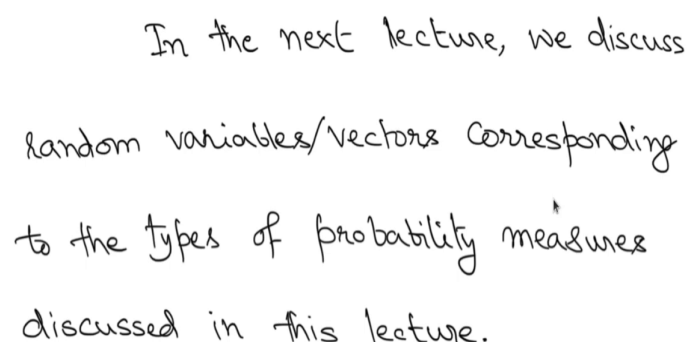 In the next lecture, we discuss
random variables/vectors corresponding
to the types of probability measures
discussed in this lecture.